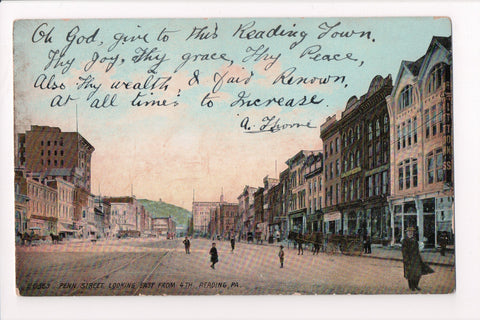 Oh God, give to this Reading Town.
Thy Joy, Thy grace, Thy Peace,
Also Thy wealth, & fair Renown,
At all times, to Increase
A. Thorne
PENN STREET LOOKING EAST FROM 4TH, READING, PA.